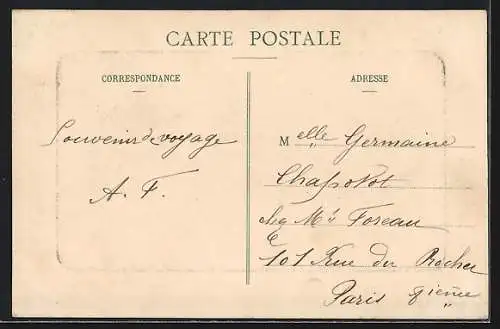 CARTE POSTALE
CORRESPONDANCE
ADRESSE
Souvenir de voyage
A. F.
Melle Germaine
Chapotot
chez Mr Foreau
101 Rue du Rocher
Paris